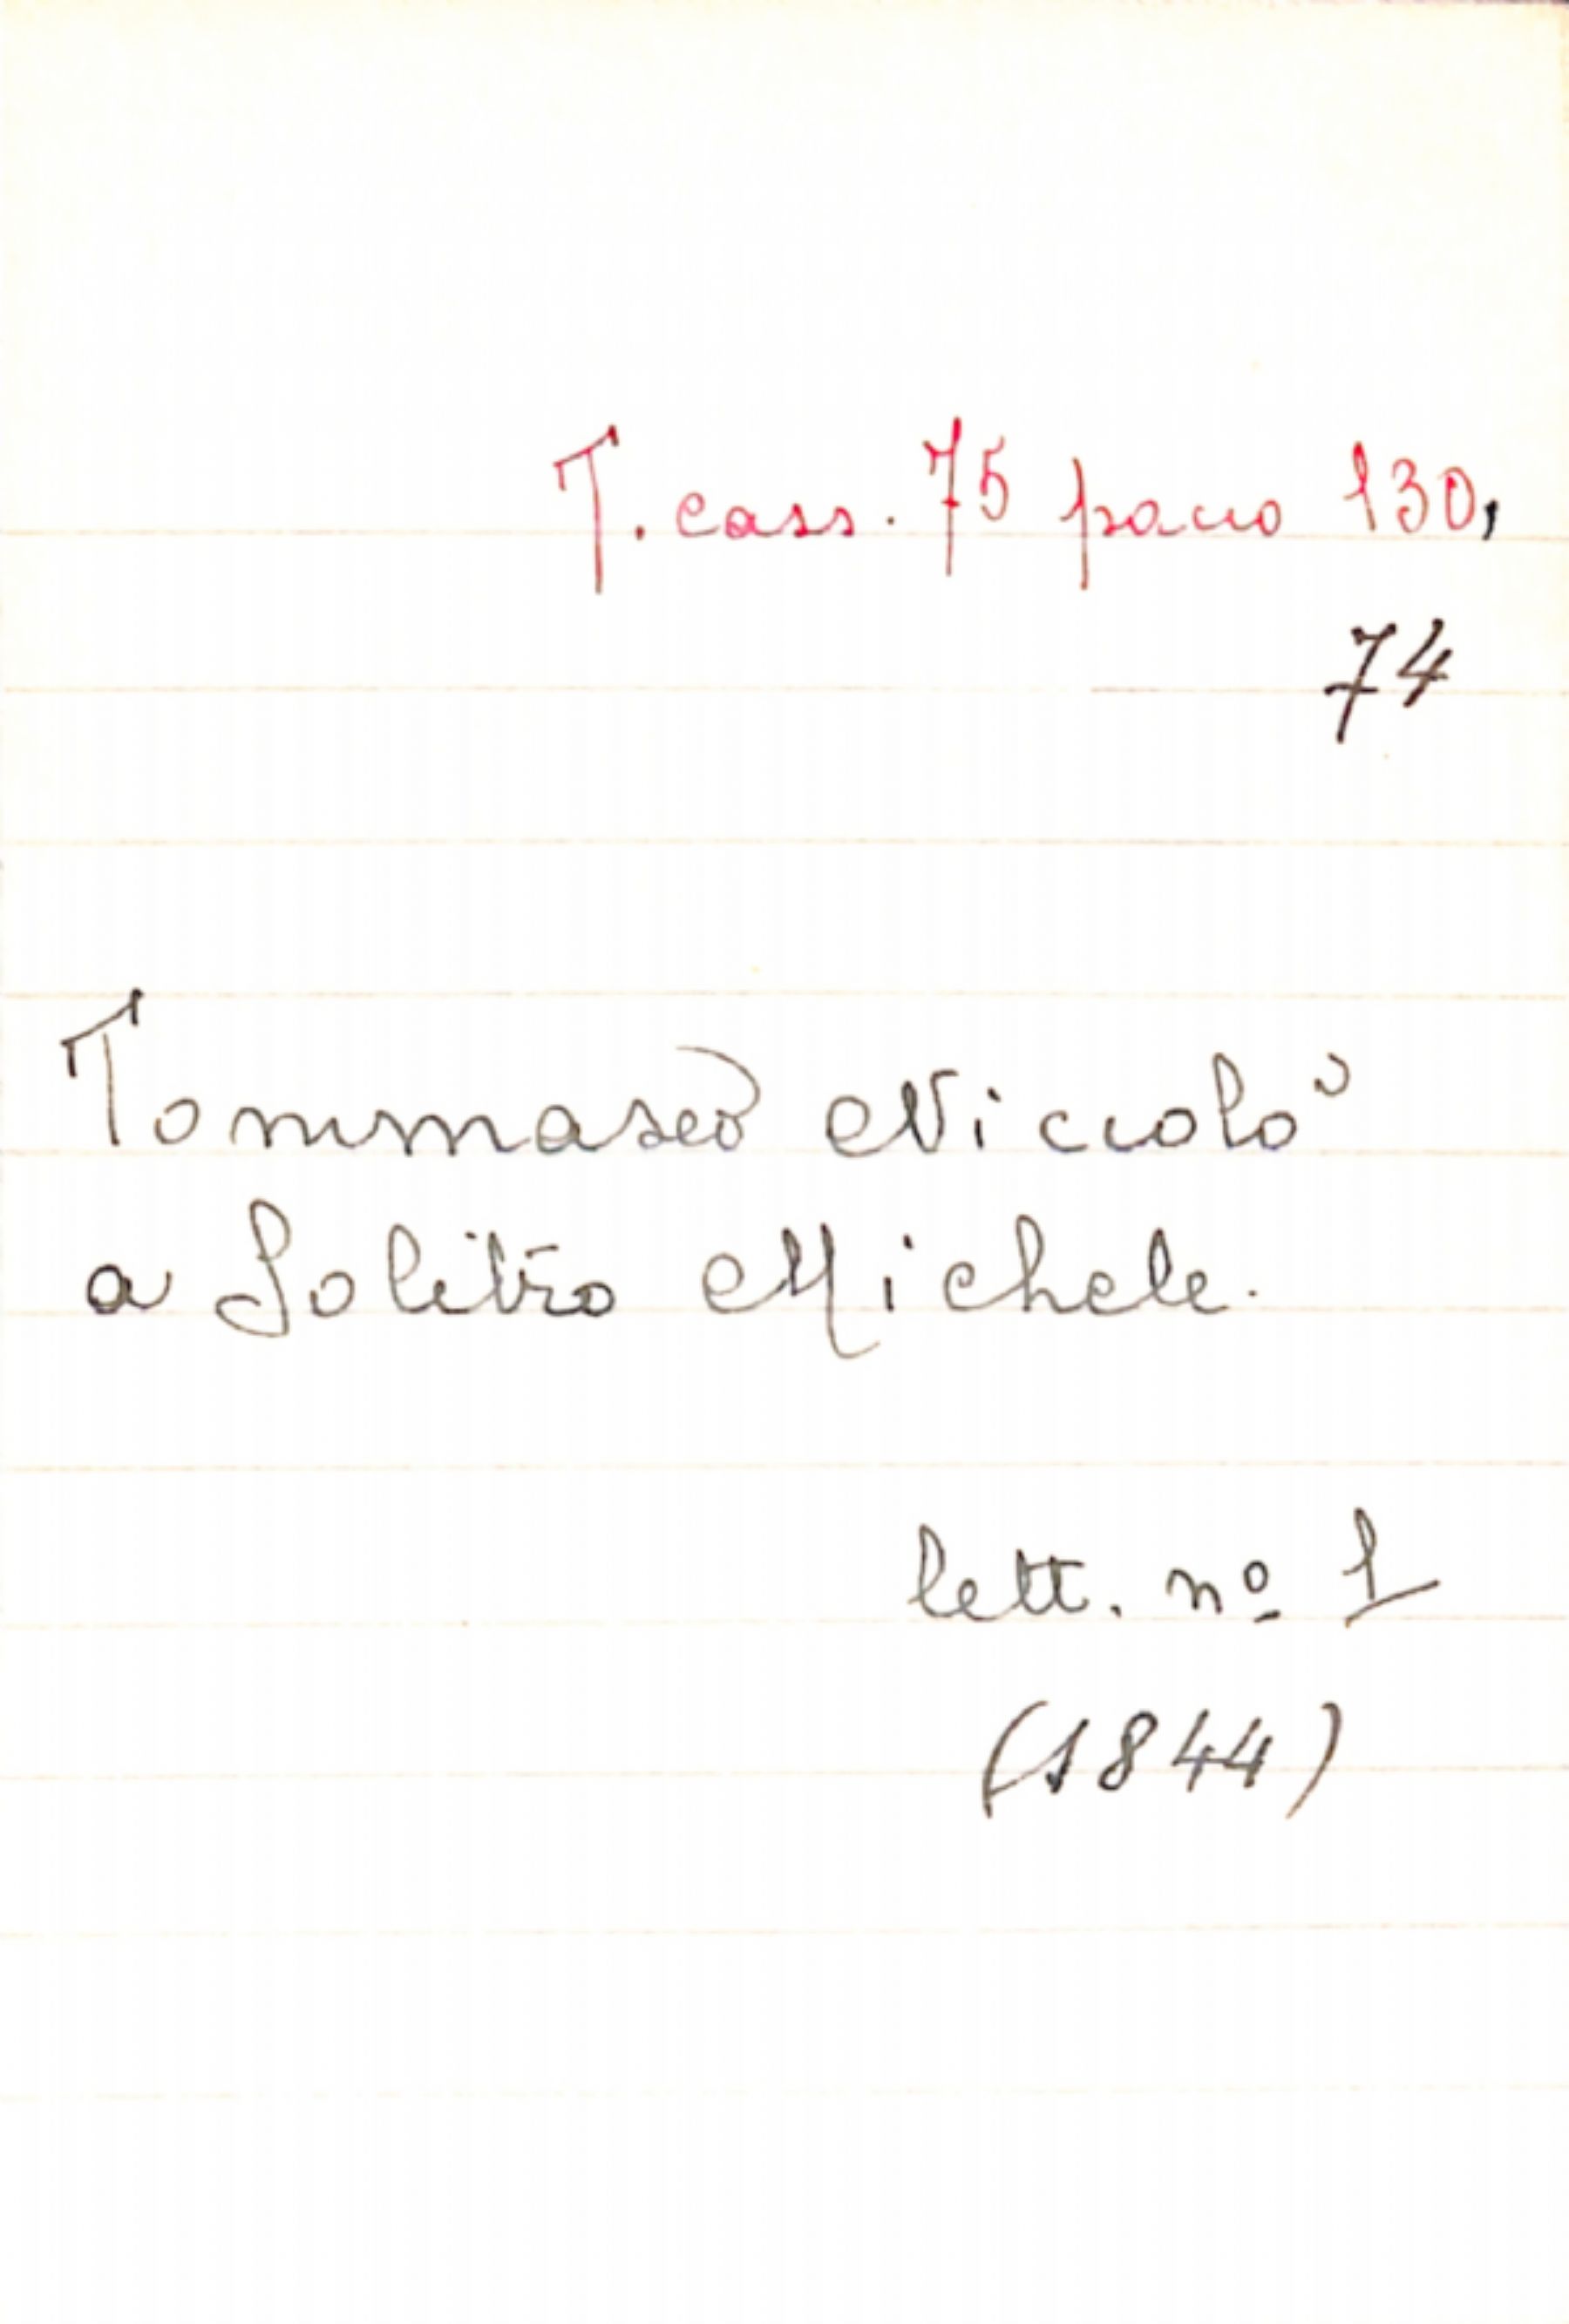 T. cass. 75 pacco 130,
74
Tommaseo Niccolò
a Solitro Michele.
lett. nº 1
(1844)